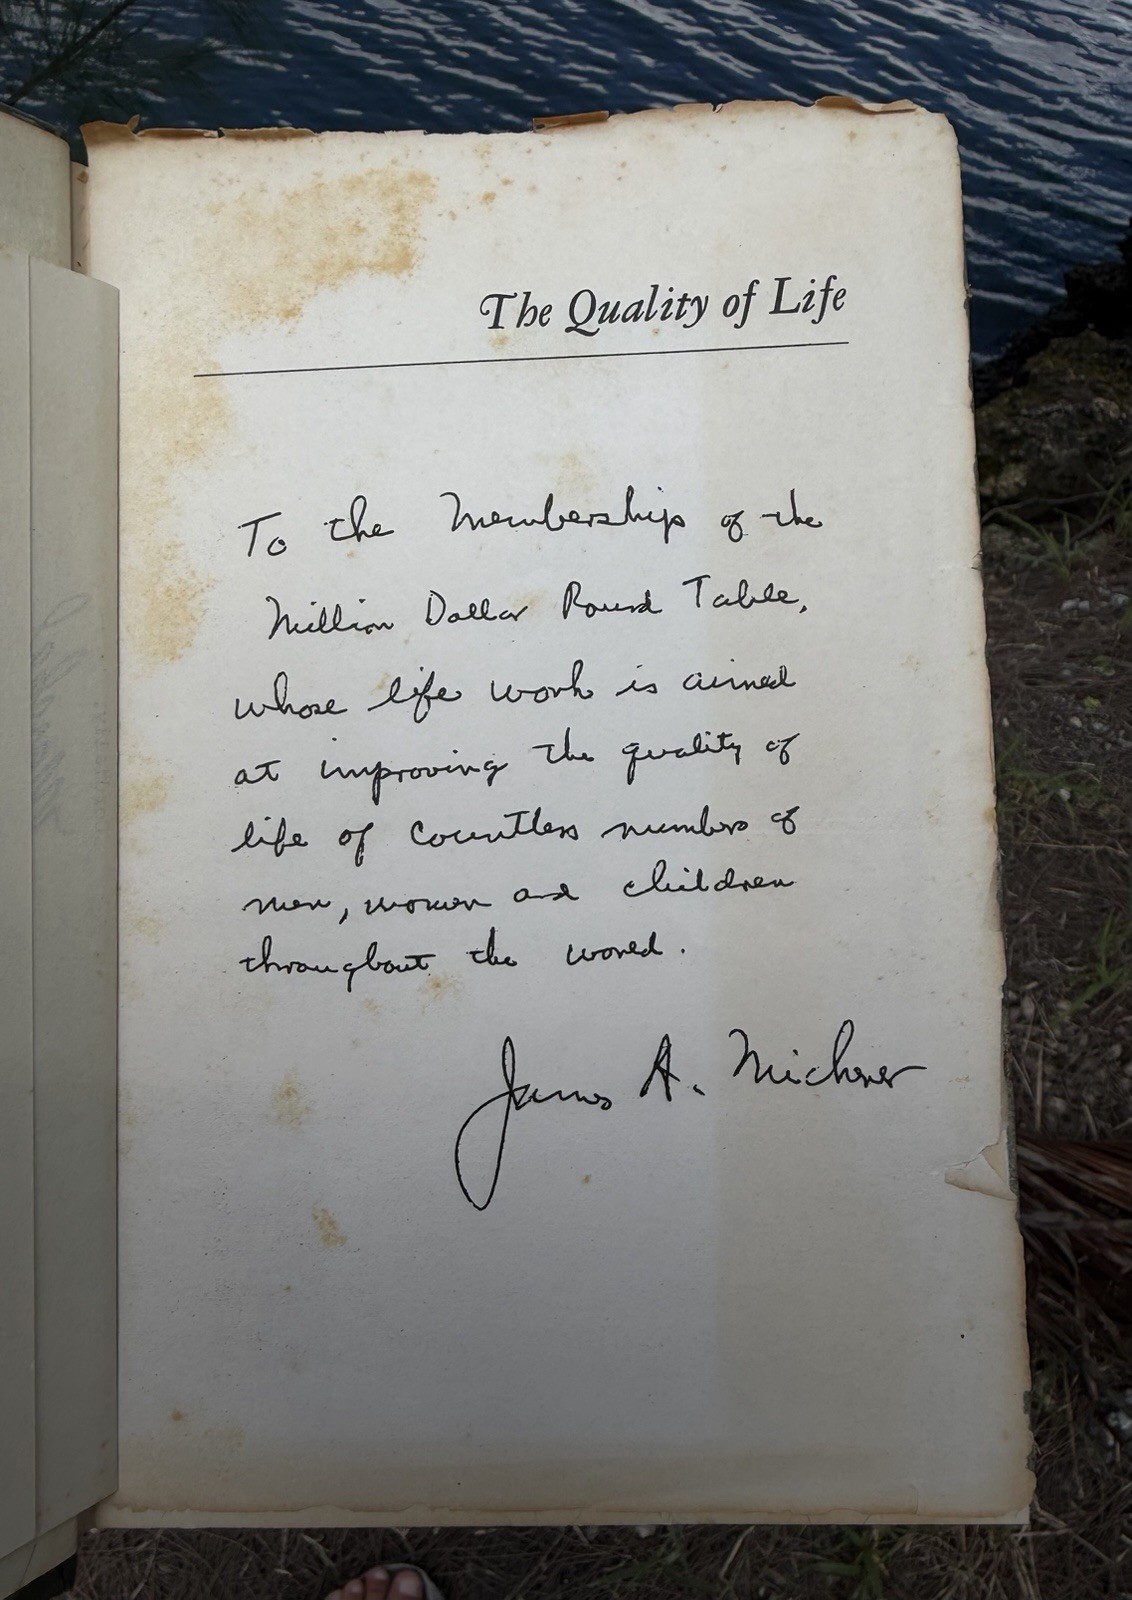 The Quality of Life
To the Membership of the
Million Dollar Round Table,
whose life work is aimed
at improving the quality of
life of countless numbers of
men, women and children
throughout the world.
James A. Michener